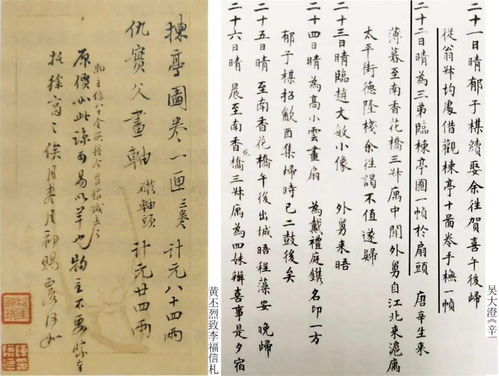 楝亭圖卷一匣 三卷 計元八十四兩
仇實父畫軸 磁軸頭 計元廿四兩
原價如此諒可易以單也物主不要
黄丕烈致李福信札
二十一日晴郁子楳續娶余往賀喜午後歸
從翁叔均處借觀楝亭十圖卷手撫一幀
二十二日晴為三弟臨楝亭圖一幀於扇頭 唐辛生來
薄暮至南香花橋三叔寓中聞外舅自江北來滬寓
太平街德隆棧余往謁不值遂歸
二十三日晴臨趙文敏小像 外舅來晤
二十四日晴為高小雲畫扇 為戴禮庭鐫名印一方
郁子楳招飲酉集歸時已二鼓後矣
二十五日晴至南香花橋午後出城晤程藻安晚歸
二十六日晴晨至南香橋三叔寓為四妹辦喜事是夕宿
吴大澂《辛